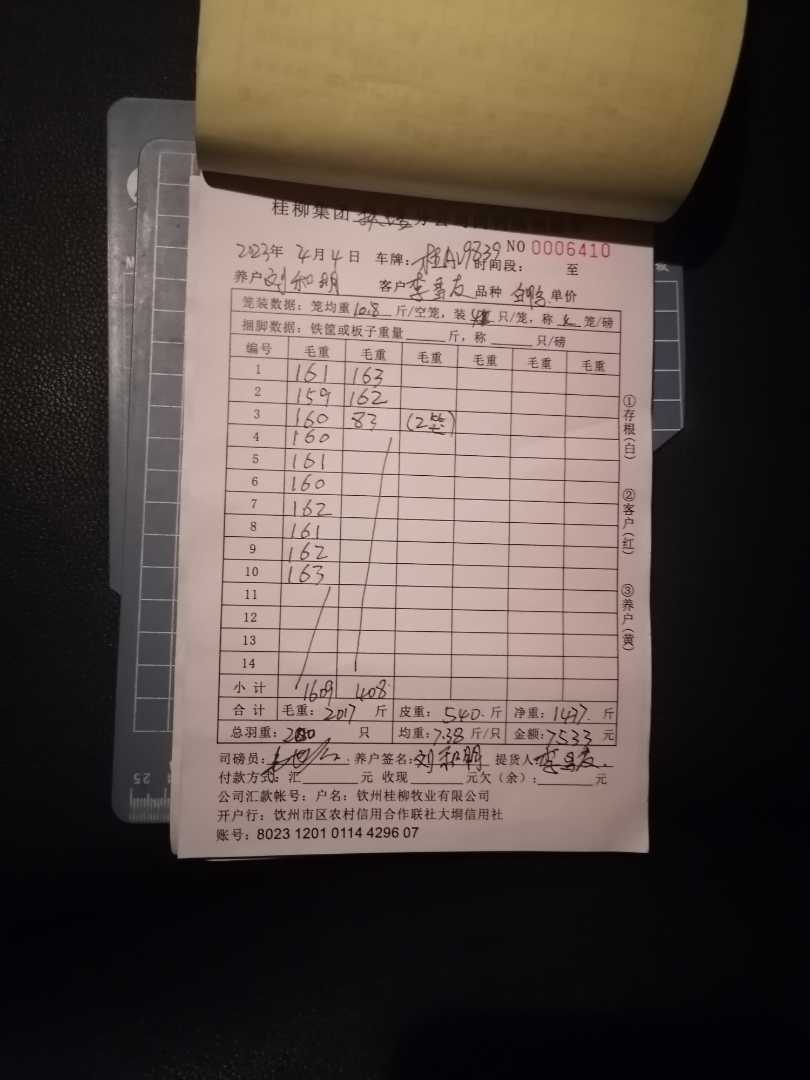 桂柳集团
NO 0006410
2023年 4月4日 车牌：桂AV9839 时间段： 至
养户 刘和明 客户 李勇友 品种 单价
笼装数据：笼均重 10.8 斤/空笼，装 只/笼，称 笼/磅
捆脚数据：铁筐或板子重量 斤，称 只/磅
编号 毛重 毛重 毛重 毛重 毛重 毛重
1 161 163
2 159 162
3 160 83 (2笼)
4 160
5 161
6 160
7 162
8 161
9 162
10 163
11
12
13
14
小计 1609 408
合计 毛重：2017 斤 皮重：540 斤 净重：1477 斤
总羽重：200 只 均重：7.38 斤/只 金额：7533 元
司磅员： 养户签名：刘和明 提货人 李勇友
付款方式：汇 元 收现 元欠（余）： 元
公司汇款帐号：户名：钦州桂柳牧业有限公司
开户行：钦州市区农村信用合作联社大垌信用社
账号：8023 1201 0114 4296 07
①存根（白）
②客户（红）
③养户（黄）
25